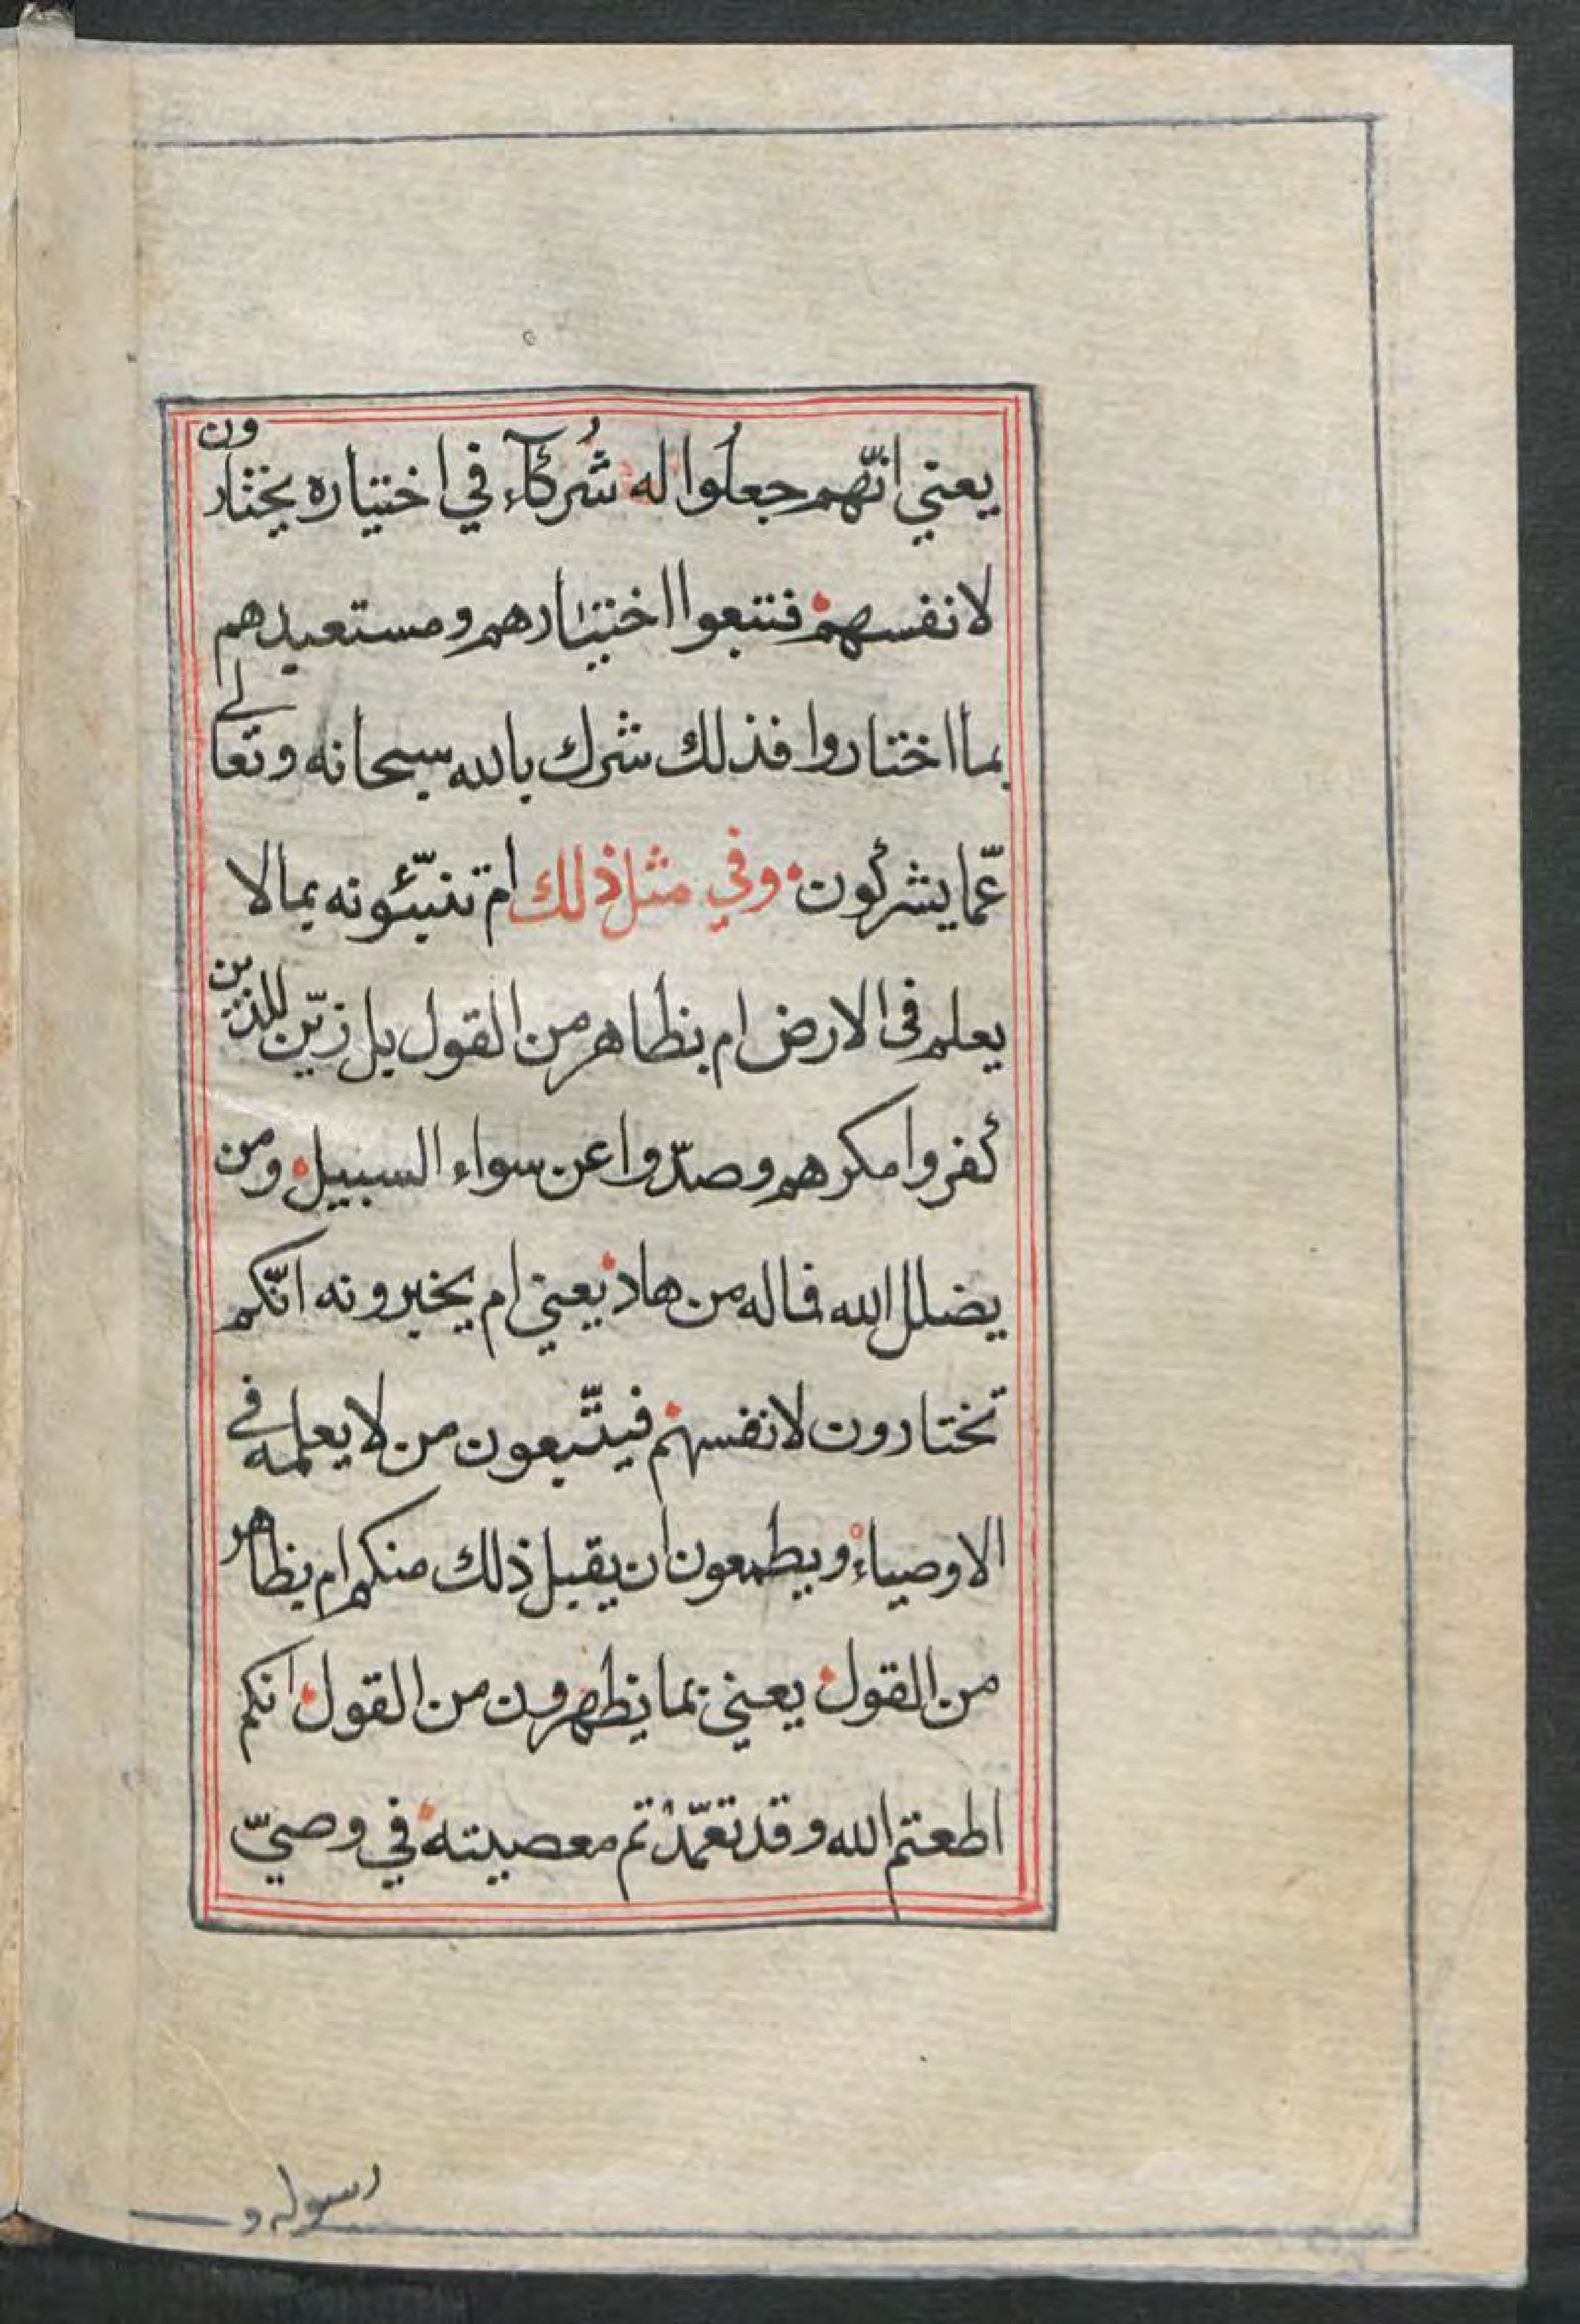 يعني انّهم جعلُوا له شُركآء في اختياره يختارون
لانفسهم فتتبعوا اختيارهم ومستعبدهم
بما اختاروا فذلك شرك بالله سبحانه وتعالى
عمّا يشركون وفي مثل ذلك ام تنبّئونه بما لا
يعلم في الارض ام بظاهر من القول بل زيّن للذين
كفروا مكرهم وصدّوا عن سواء السبيل ومن
يضلل الله فما له من هاد يعني ام يخبرونه انّكم
تختارون لانفسهم فيتّبعون من لا يعلمه في
الاوصياء ويطمعون ان يقبل ذلك منكم ام بظاهر
من القول يعني بما يظهرون من القول انكم
اطعتم الله وقد تعمّدتم معصيته في وصيّ
رسوله و